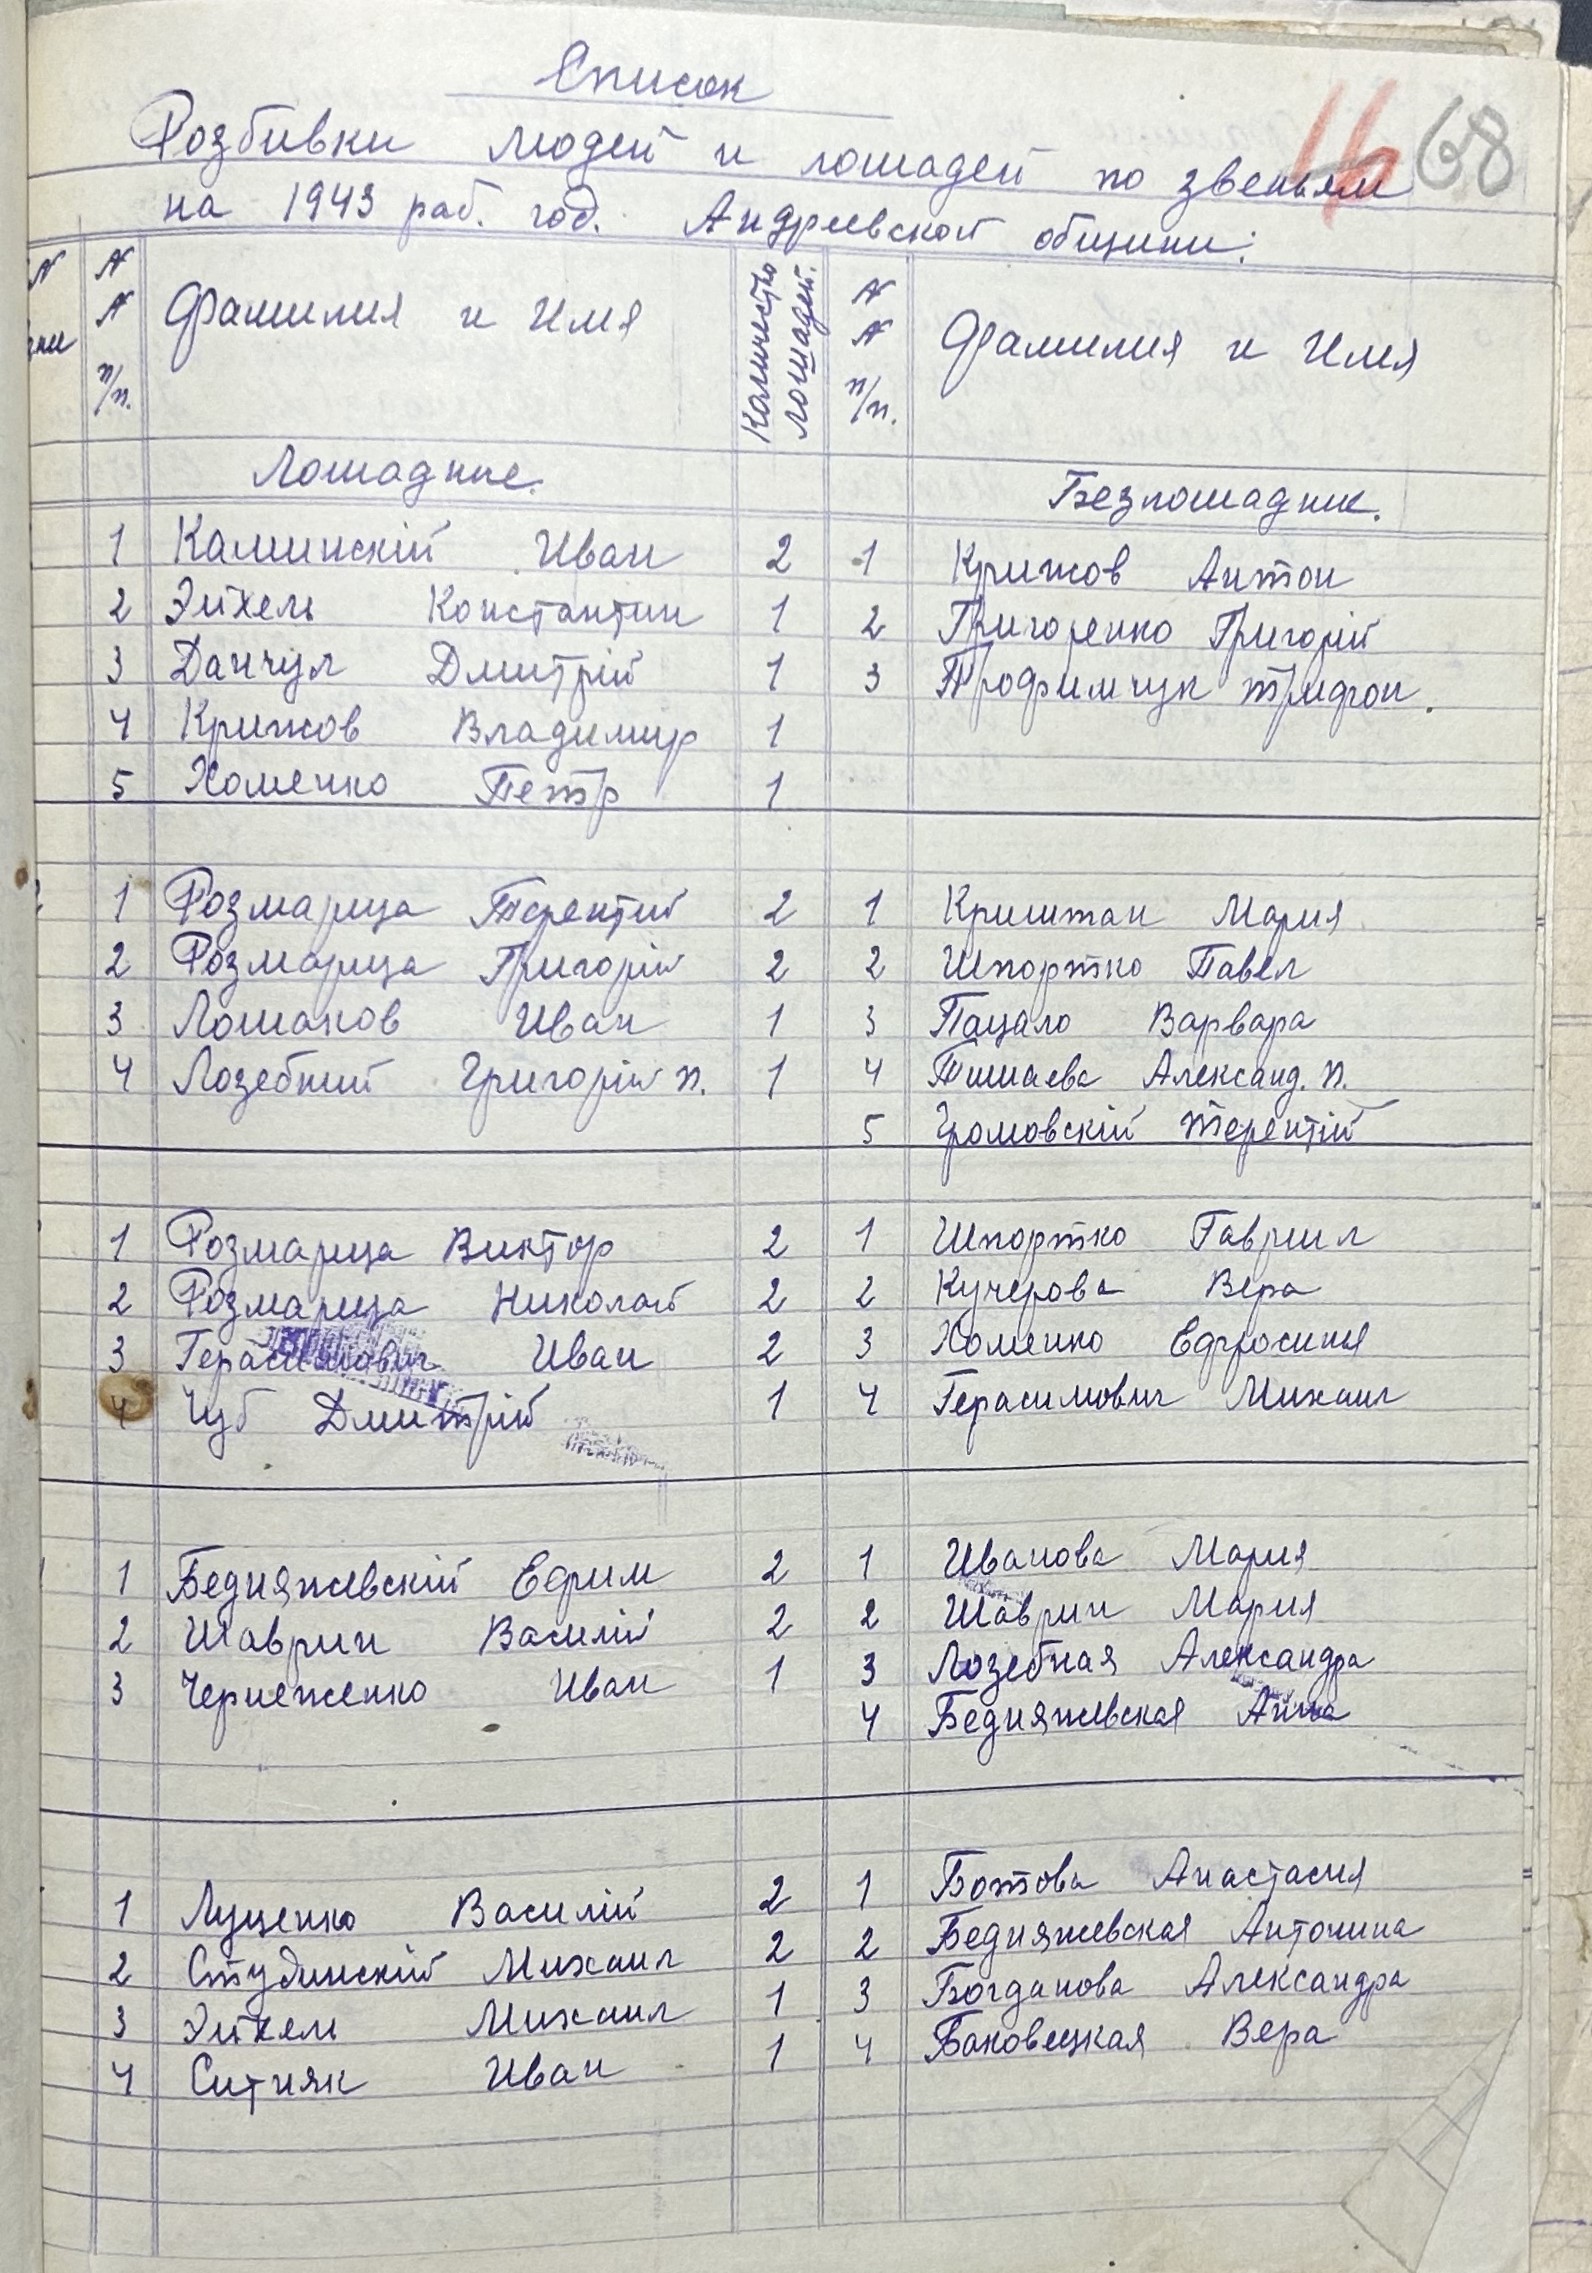 Список
16 68
Розбивки людей и лошадей по звеньям
на 1943 раб. год. Андреевской общини:
N N N п/п. Фамилия и Имя Количество лошадей. N N п/п. Фамилия и Имя
Лошадние. Безлошадние.
1 Каминскій Иван 2 1 Крижов Антон
2 Эйхель Константин 1 2 Григоренко Григорій
3 Данчул Дмитрій 1 3 Трофимчук Трифон.
4 Крижов Владимир 1
5 Хоменко Петр 1
1 Розмарица Терентий 2 1 Криштан Мария
2 Розмарица Григорій 2 2 Шпортко Павел
3 Лошаков Иван 1 3 Пацало Варвара
4 Лозебний Григорій п. 1 4 Тишаева Александ. п.
5 Громовскій Терентій
1 Розмарица Виктор 2 1 Шпортко Гавриил
2 Розмарица Николай 2 2 Кучерова Вера
3 Герасимович Иван 2 3 Хоменко Ефросиния
4 Чуб Дмитрій 1 4 Герасимович Михаил
1 Бедняжевскій Ефрим 2 1 Иванова Мария
2 Шаврин Василій 2 2 Шаврин Мария
3 Чернеженко Иван 1 3 Лозебная Александра
4 Бедняжевская Анна
1 Луценко Василій 2 1 Ботова Анастасия
2 Студинскій Михаил 2 2 Бедняжевская Антонина
3 Эйхель Михаил 1 3 Богданова Александра
4 Ситняк Иван 1 4 Баковецкая Вера